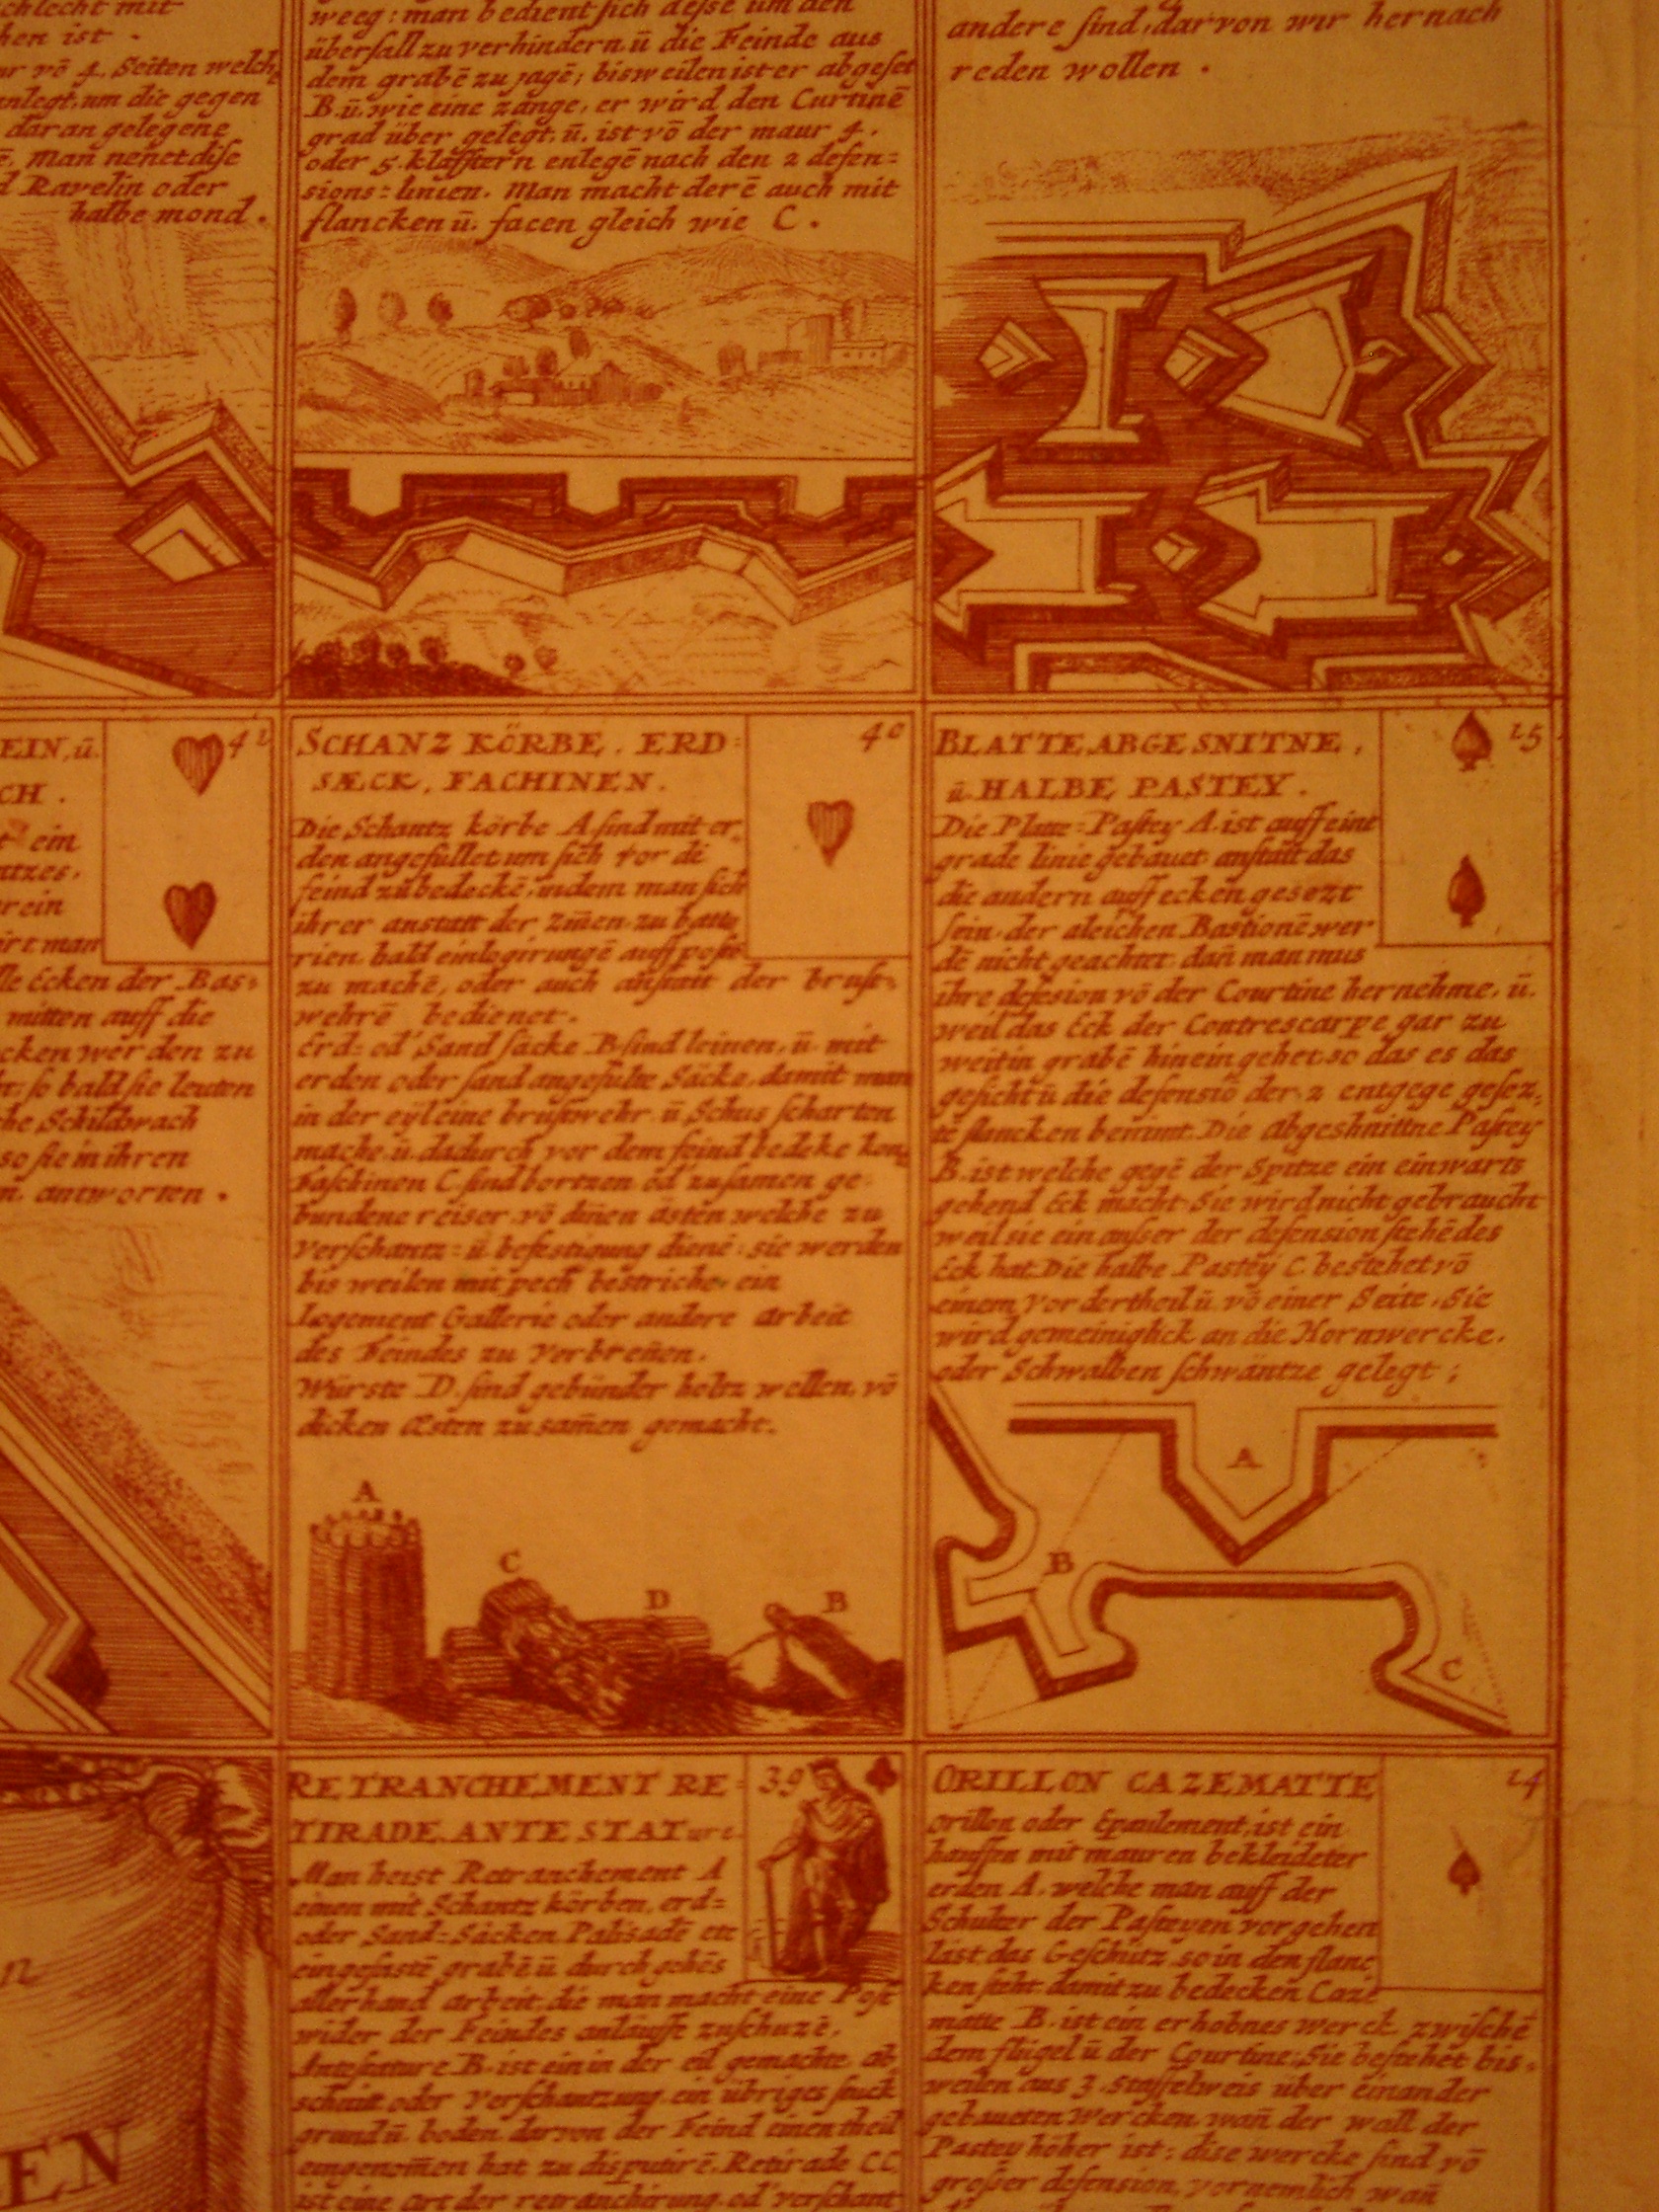 schlecht mit
hen ist .
ur vō 4. Seiten welch
anlegt, um die gegen
daran gelegene
ē. Man nēnet dise
d Ravelin oder
halbe mond .
weeg: man bedient sich desse um den
überfall zu verhindern, ū die Feinde aus
dem grabē zu jagē; bisweilen ist er abgeset
B. ū. wie eine zange, er wird den Curtinē
grad über gelegt, ū. ist vō der maur 4.
oder 5. klafftern enlegē nach den 2 defen=
sions=linien. Man macht der ē auch mit
flancken ū. facen gleich wie C .
andere sind, darvon wir hernach
reden wollen .
EIN, ū.
CH .
ein
ntzes,
rein
irt man
lle Ecken der Bas=
mitten auff die
cken werden zu
so bald sie leuten
che Schildwach
so sie in ihren
n. antworten .
41
SCHANZ KÖRBE, ERD=
SÆCK, FACHINEN.
40
Die Schantz körbe A. sind mit er=
den angefüllet um sich vor dē
feind zubedeckē, indem man sich
ihrer anstatt der Zin̄en zu batte
rien, bald einlogirungē auff poste
zu machē, oder auch anstatt der brust=
wehrē bedienet.
Erd= od' Sand säcke B. sind leinen, ū. mit
erden oder sand angefülte Säcke, damit man
in der eÿl eine brustwehr ū. Schus scharten
mache ū. dadurch vor dem feind bedeke kon̄
Faschinen C. sind bortzen od' zusamen ge=
bundene reiser, vō dün̄en ästen welche zu
verschantz= ū. befestigung dienē: sie werden
bis weilen mit pech bestrichē, ein
Logement Gallerie oder andere arbeit
des Feindes zu verbren̄en.
Würste D. sind gebünder holtz wellen, vō
dicken Æsten zusam̄en gemacht.
A
C
D
B
BLATTE, ABGESNITNE,
ū. HALBE PASTEY .
15
Die Platte=Pastey A. ist auff eine
grade linie gebauet, anstatt das
die andern auff ecken gesezt
sein, der gleichen Bastionē wer
dē nicht geachtet, dan̄ man mus
ihre defēsion vō der Courtine hernehmē, ū.
weil das Eck der Contrescarpe gar zu
weit in grabē hinein gehet, so das es das
gesicht ū die defensiō der 2 entgegē gesez=
tē flancken benimt. Die abgeshnittne Pastey
B. ist welche gegē der Spitze ein einwarts
gehend Eck macht. Sie wird nicht gebraucht
weil sie ein ausser der defension stehēdes
Eck hat. Die halbe Pastey C. bestehet vō
einem Vordertheil ū. vō einer Seite, Sie
wird gemeiniglick an die Hornwercke,
oder Schwalben schwäntze gelegt ;
A
B
C
n
EN
RETRANCHEMENT RE=
TIRADE, ANTE STATure
39
Man heist Retranchement A
einen mit Schantz körben, erd=
oder Sand=Säcken Palisadē etc
eingefastē grabē ū. durch gehēs
allerhand arbeit, die man macht eine Post
wider der Feindes anläuffe zuschuzē,
Antestature B. ist ein in der eil gemachte ab
schnitt oder Verschantzung, ein übriges stuck
grund ū. boden, darvon der Feind einen theil
eingenom̄en hat zu disputirē. Retirade C.C.
ist eine art der retranchirung, od' verschant
ORILLON CAZEMATTE
14
Orillon oder Epaulement, ist ein
hauffen mit mauren bekleideter
erden A. welche man auff der
Schulter der Pasteyen vorgehen
läst das Geschütz, so in den flanc
ken steht, damit zu bedecken Caze
matte B. ist ein erhobnes werck, zwischē
dem flügel ū der Courtine; Sie bestehet bis=
weilen aus 3. staffelweis über einander
gebaueten Wercken, wan̄ der wall der
Pastey höher ist: dise wercke sind vō
grosser defension, vornemlich wan̄